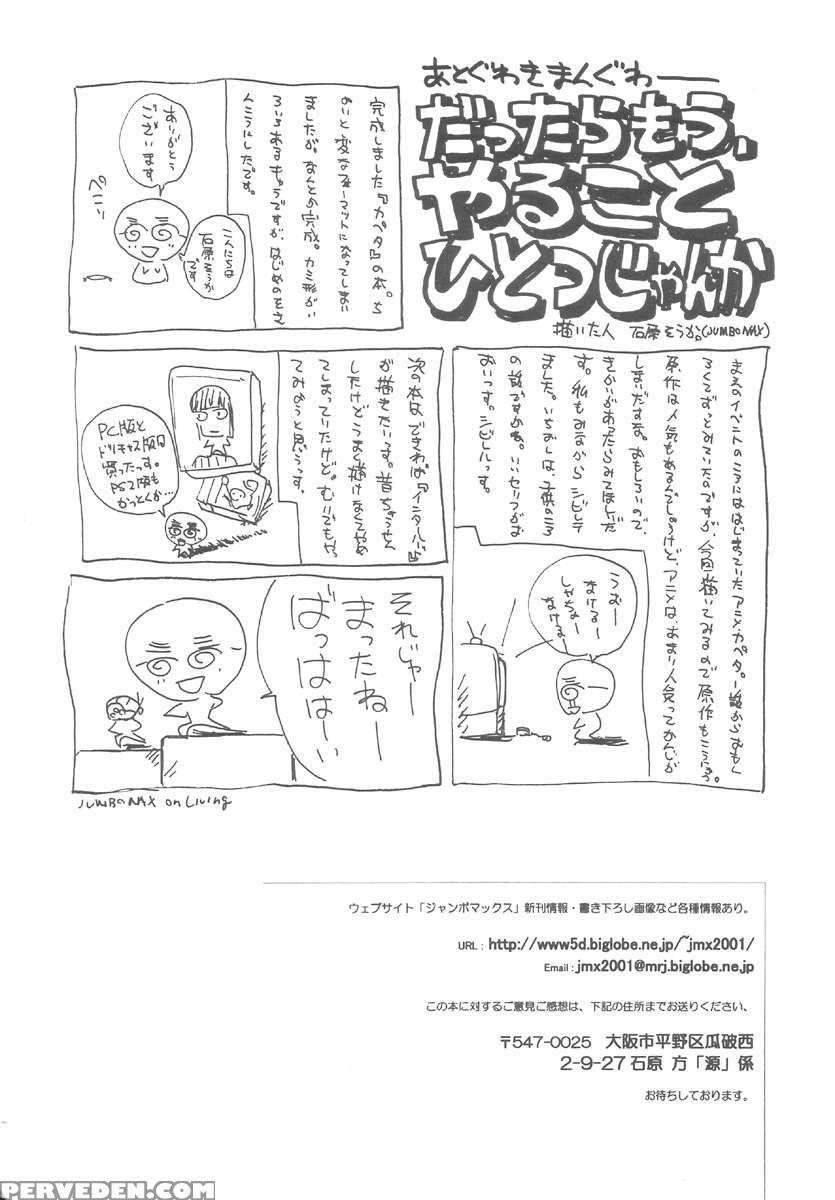 あとぐわきまんぐわー
だったらもう、
やること
ひとつじゃんか
描いた人 石原そうか。(JUMBO MAX)
完成しました『カペタ』の本。ち
ょいと変なフォーマットになってしまい
ましたが。なんとか完成。カミ形がい
ろいろあるキャラですが、はじめのをさ
んこうにしたです。
ありがとう
ございます
こんにちは
石原そうか
です
ペこー
まえのイベントのころにははじまっていたアニメカペタ。一話からおもし
ろくてずっとみていたのですが、今回描いてみるので原作もこうにゅう。
原作は人気もあるんでしょうけど、アニメは、あまり人気ってかんじが
しまいだすな。おもしろいので、
きかいがあったらみてほしいだ
す。私もみながらシビレテ
ました。いちおしは、子供のころ
の話ですかね。いいセリフがお
おいっす。シビレルっす。
うおー
まけるー
しゃちょー
まけるー
次の本は、できれば『インタールード』
が描きたいす。昔ちょうせん
したけどうまく描けなくてやめ
てしまっていたけど。むりにでもやっ
てみようと思うっす。
PC版と
ドリキャス版は
買ったっす。
PS2版も
かっとくか…
それじゃー
まったねー
ばっははーい
JUMBO MAX on Living
ウェブサイト「ジャンボマックス」新刊情報・書き下ろし画像など各種情報あり。
URL : http://www5d.biglobe.ne.jp/~jmx2001/
Email : jmx2001@mrj.biglobe.ne.jp
この本に対するご意見ご感想は、下記の住所までお送りください、
〒547-0025 大阪市平野区瓜破西
2-9-27 石原 方「源」係
お待ちしております。
PERVEDEN.COM